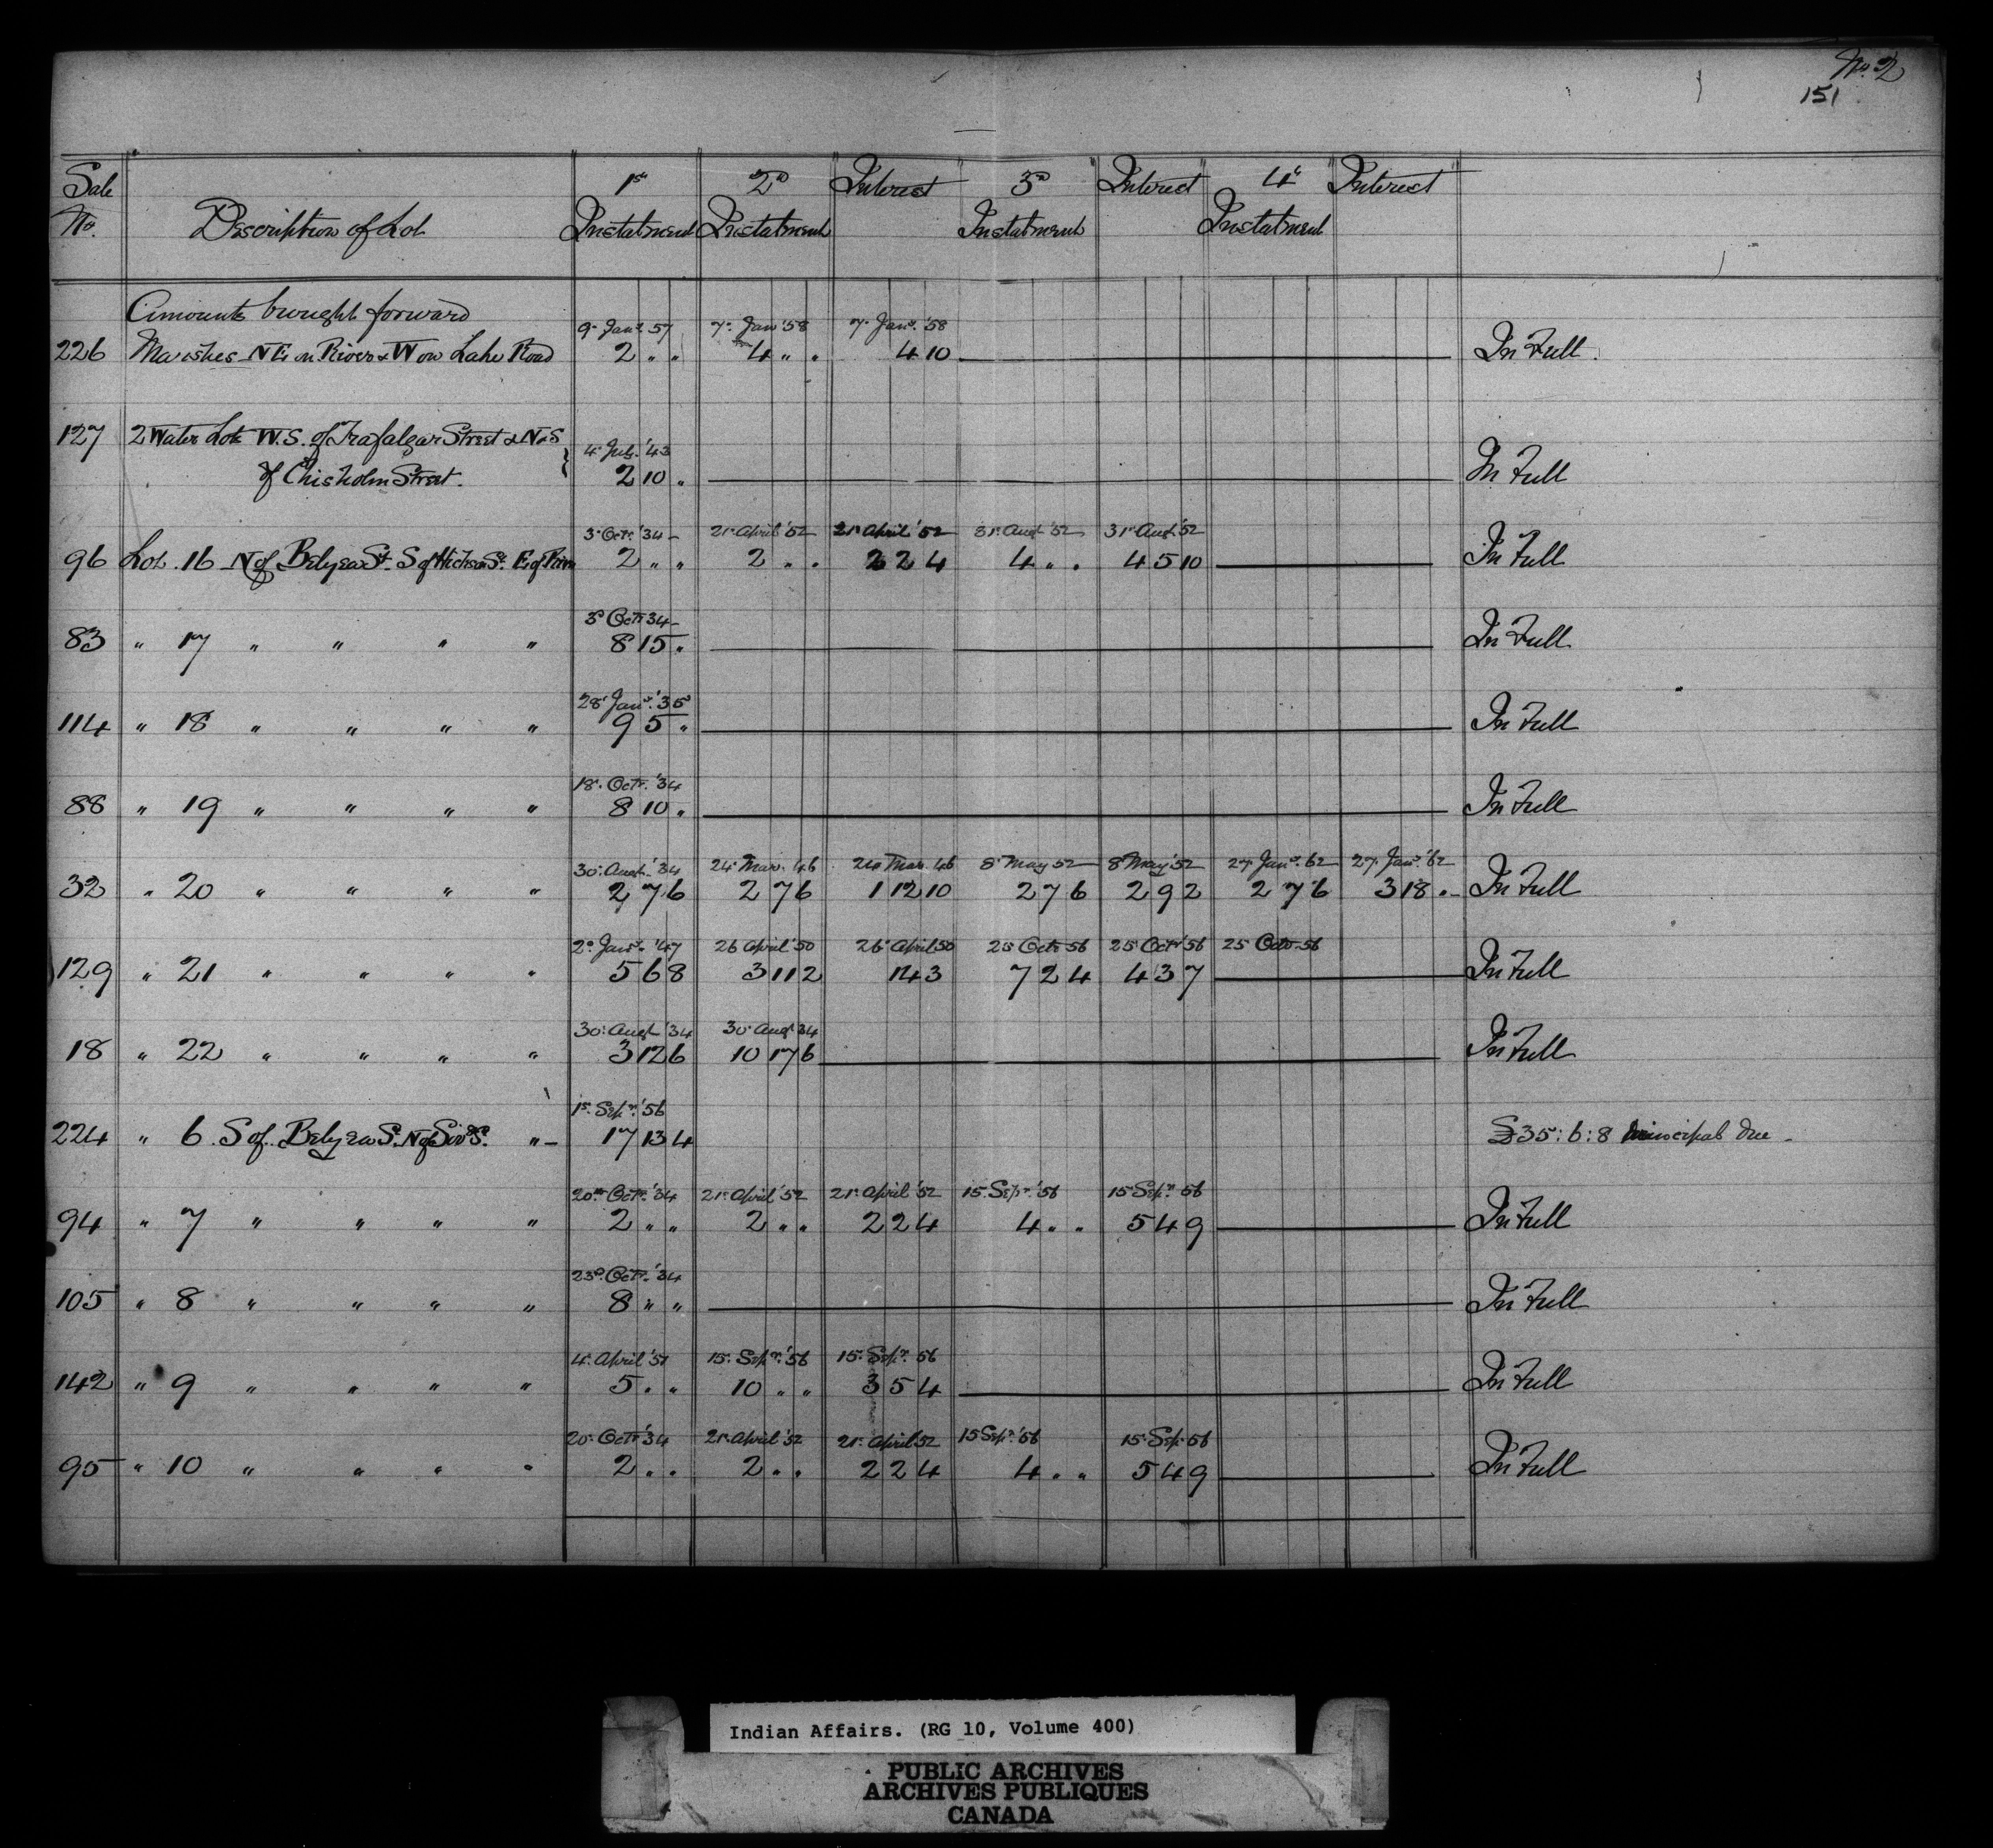 No. 2
151
Sale No. Description of Lot 1st Instalment 2D Instalment Interest 3D Instalment Interest 4th Instalment Interest
Amounts brought forward
9. Jany. 57 7. Jany '58 7. Jany. '58
226 Marshes NE on River & W on Lake Road 2 " " 4 " " 4 10 In Full.
127 2 Water Lots W.S. of Trafalgar Street & N & S
4. July. '43
of Chisholm Street. 2 10 " In Full
3. Octr. '34 21. April '52 21. April '52 31. Augt '52 31. Augt '52
96 Lot. 16 N of Belyea St. S of Hickson St. E of River 2 " " 2 " " 2 2 4 4 " " 4 5 10 In Full
3D Octr 34
83 " 17 " " " " 8 15 " In Full
28. Jany. '35
114 " 18 " " " " 9 5 " In Full
18. Octr. '34
88 " 19 " " " " 8 10 " In Full
30. Augt. '34 24. Mar. 46 24 Mar. 46 8. May 52 8. May '52 27. Jany. 62 27. Jany. '62
32 " 20 " " " " 2 7 6 2 7 6 1 12 10 2 7 6 2 9 2 2 7 6 3 18 " In Full
2D Jany. '47 26 April '50 26. April 50 25 Octr 56 25. Octr '56 25 Octr 56
129 " 21 " " " " 5 6 8 3 11 2 1 4 3 7 2 4 4 3 7 In Full
30. Augt '34 30. Augt 34
18 " 22 " " " " 3 12 6 10 17 6 In Full
1st. Sepr. '56
224 " 6. S of. Belyea St. N of " 17 13 4 £35:6:8 principal due
20th Octr. '34 21. April '52 21. April '52 15. Sepr. '56 15 Sepr. 56
94 " 7 " " " " 2 " " 2 " " 2 2 4 4 " " 5 4 9 In Full
23D. Octr. '34
105 " 8 " " " " 8 " " In Full
4. April '51 15. Sepr. '56 15. Sepr. 56
142 " 9 " " " " 5 " " 10 " " 3 5 4 In Full
20. Octr '34 21. April '52 21. April 52 15 Sepr. '56 15. Sepr 56
95 " 10 " " " " 2 " " 2 " " 2 2 4 4 " " 5 4 9 In Full
Indian Affairs. (RG 10, Volume 400)
PUBLIC ARCHIVES
ARCHIVES PUBLIQUES
CANADA